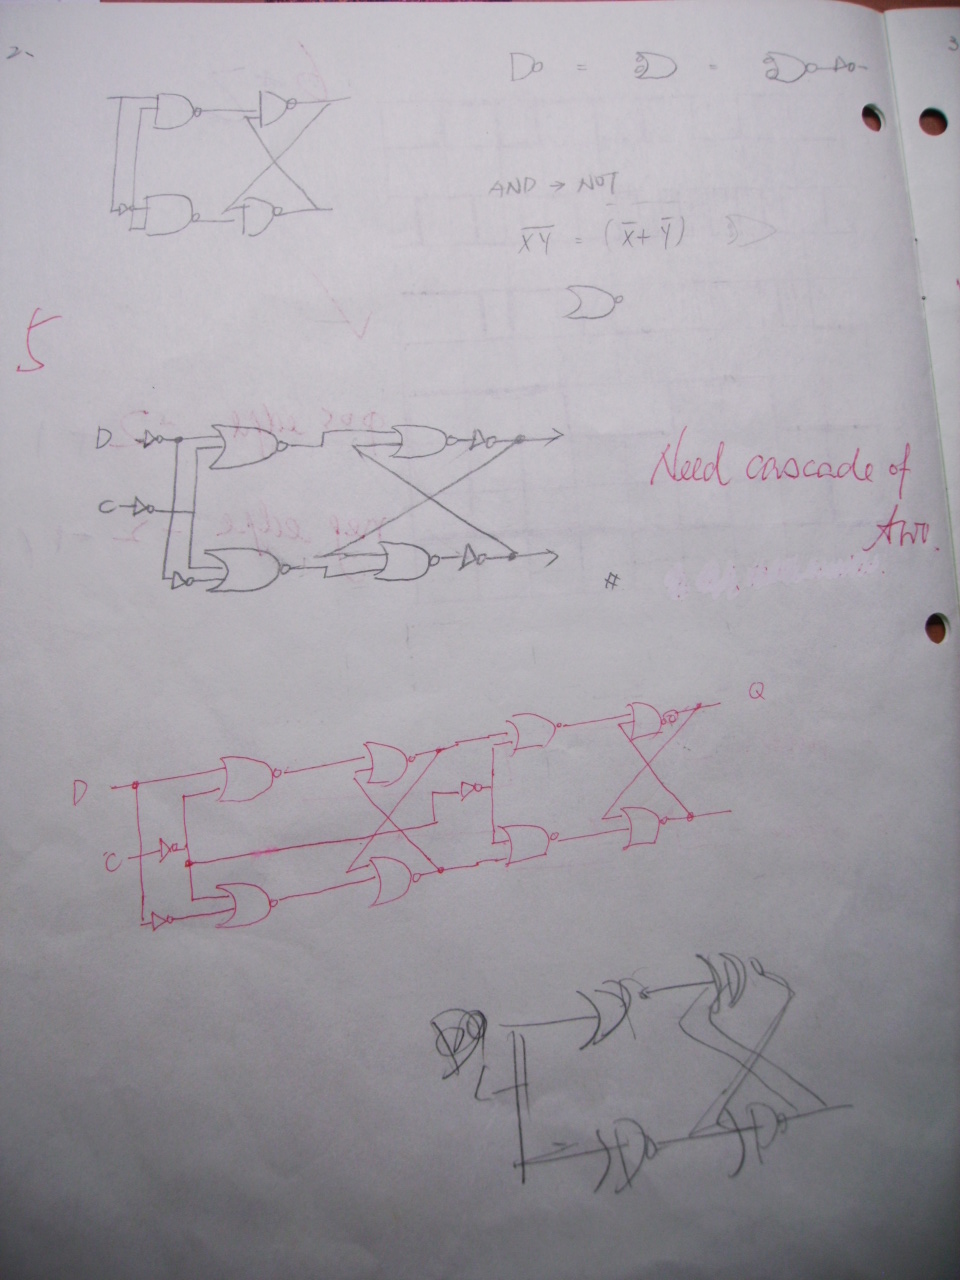 2.
3
=
=
AND → NOT
X̅Y̅ = (X̅ + Y̅)
5
D
C
Need cascade of
two.
#
Q
D
C